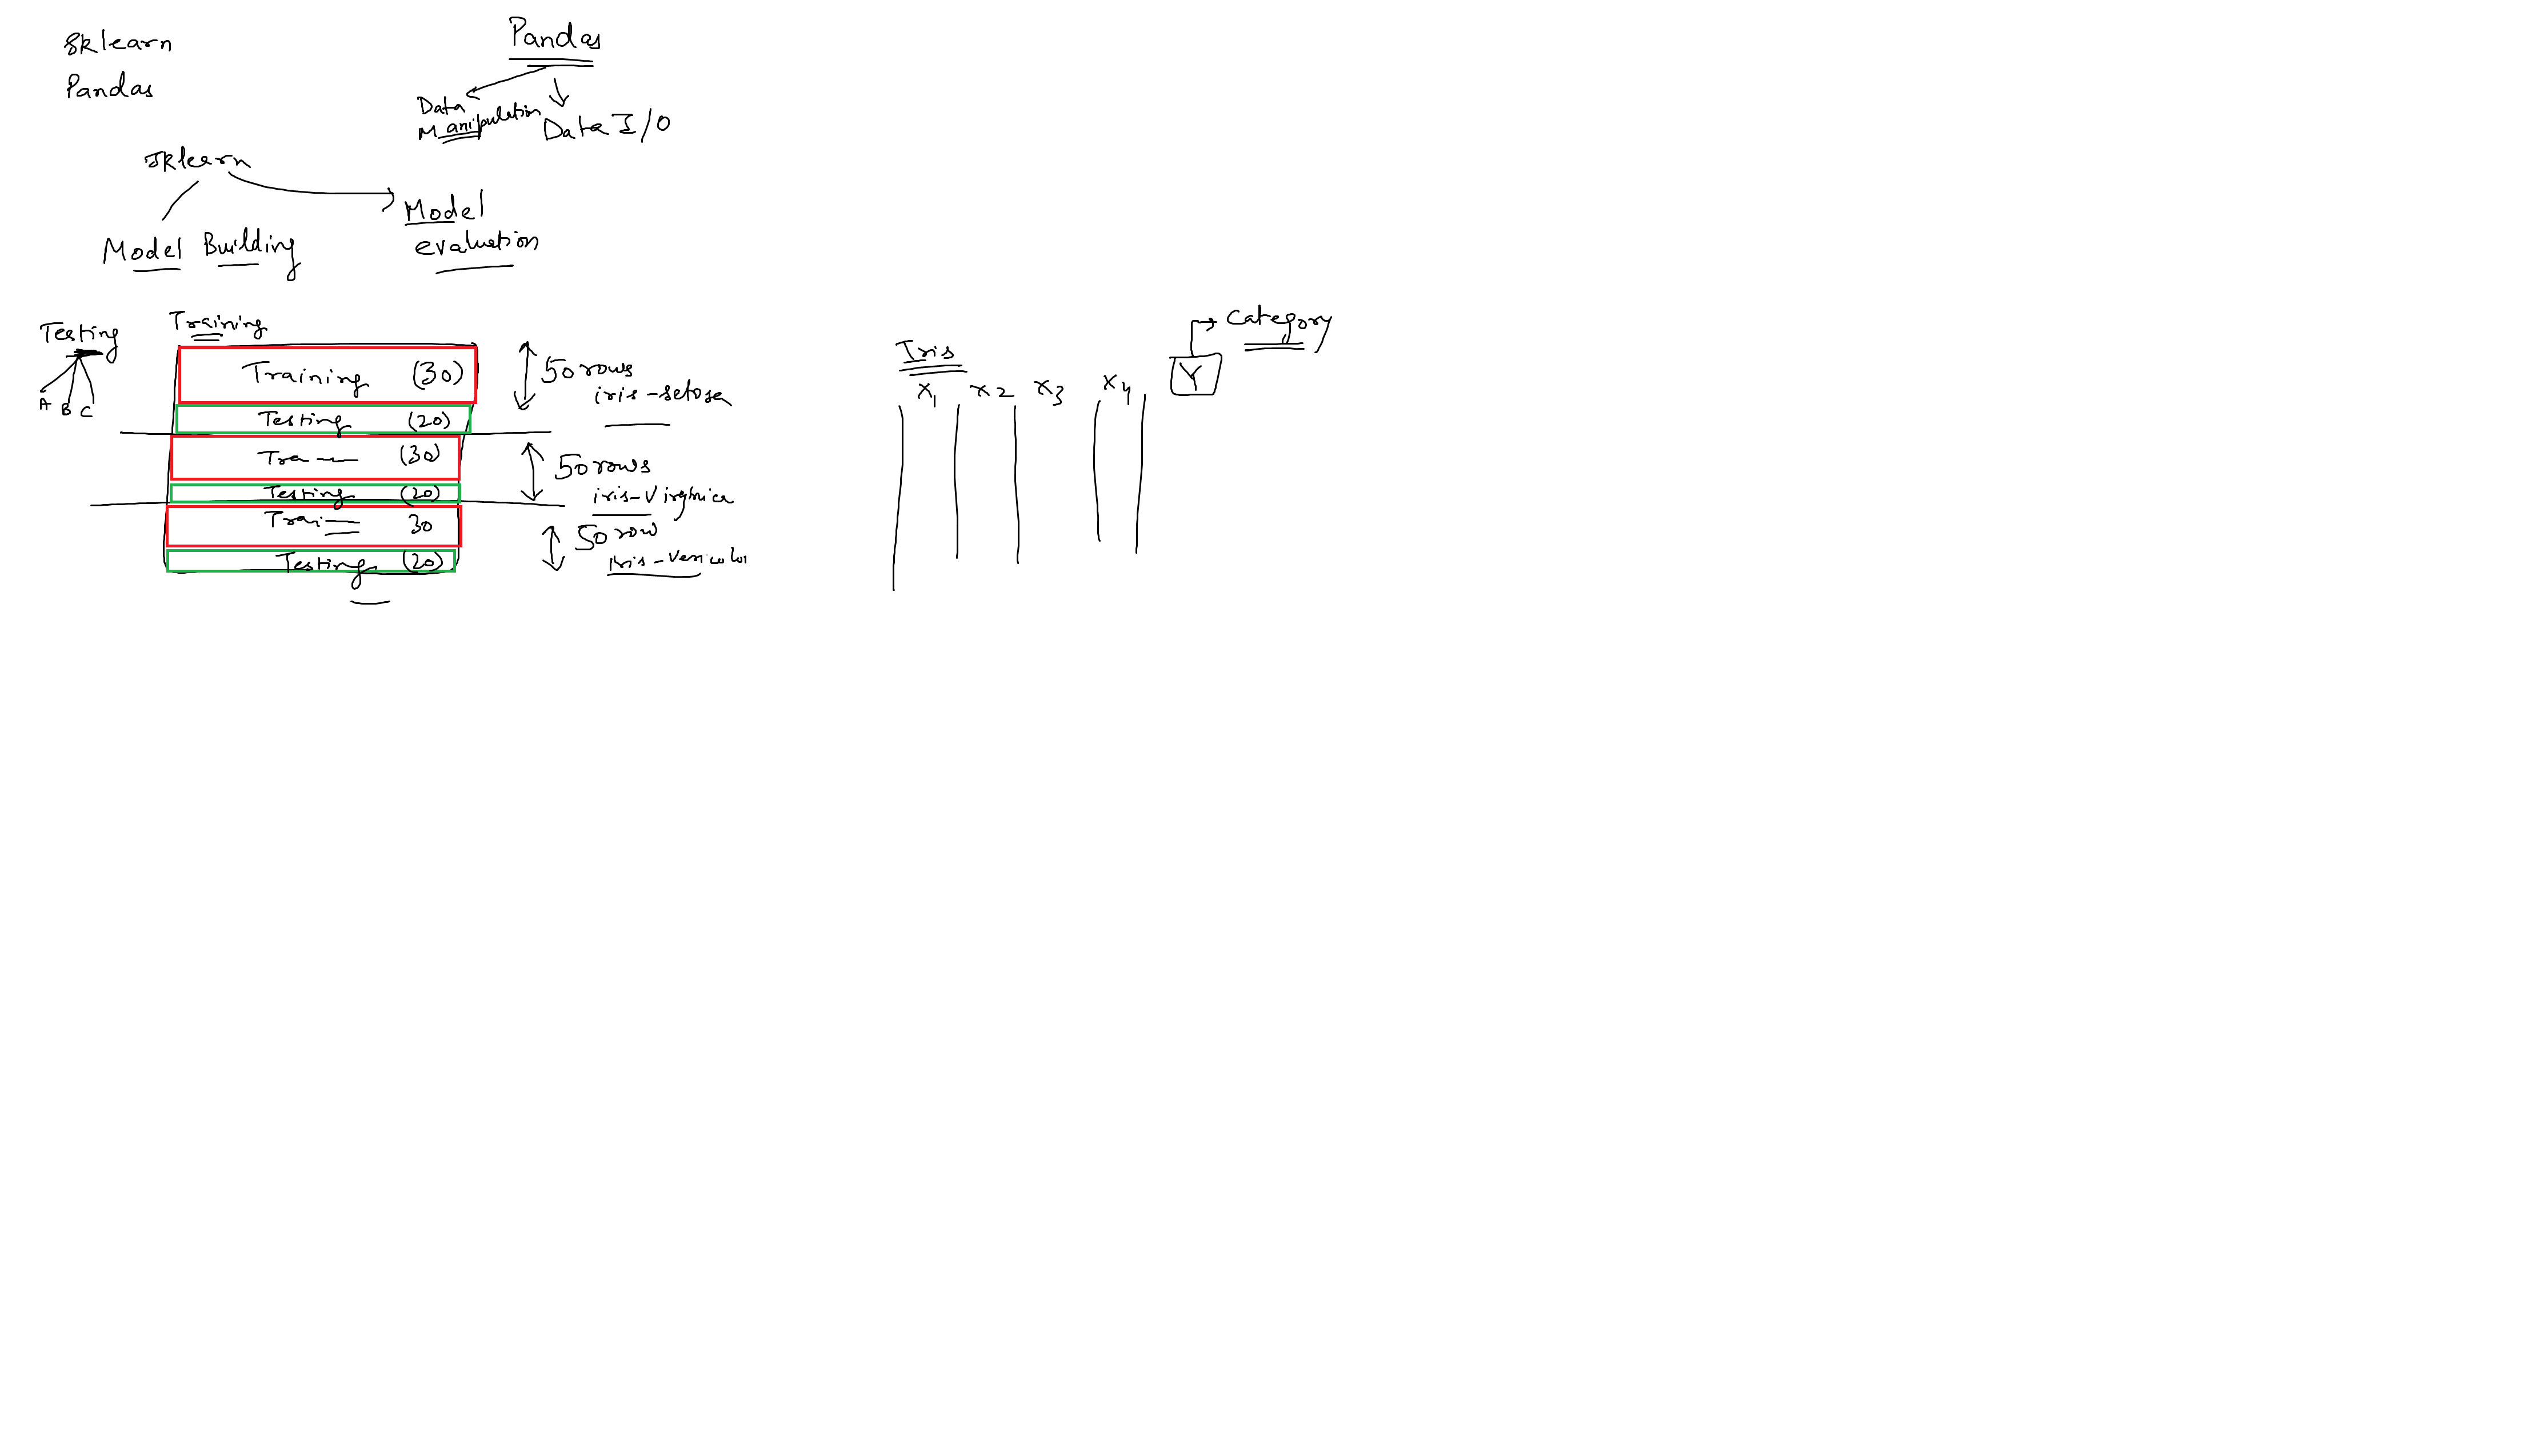 sklearn
Pandas
Pandas
Data
Manipulation
Data I/O
sklearn
Model Building
Model
evaluation
Testing
A B C
Training
Training (30)
Testing (20)
Tra (30)
Testing (20)
Trai 30
Testing (20)
50 rows
iris-setosa
50 rows
iris-Virginica
50 row
Iris-Versicolor
Iris
x1 x2 x3 x4
Y
Category